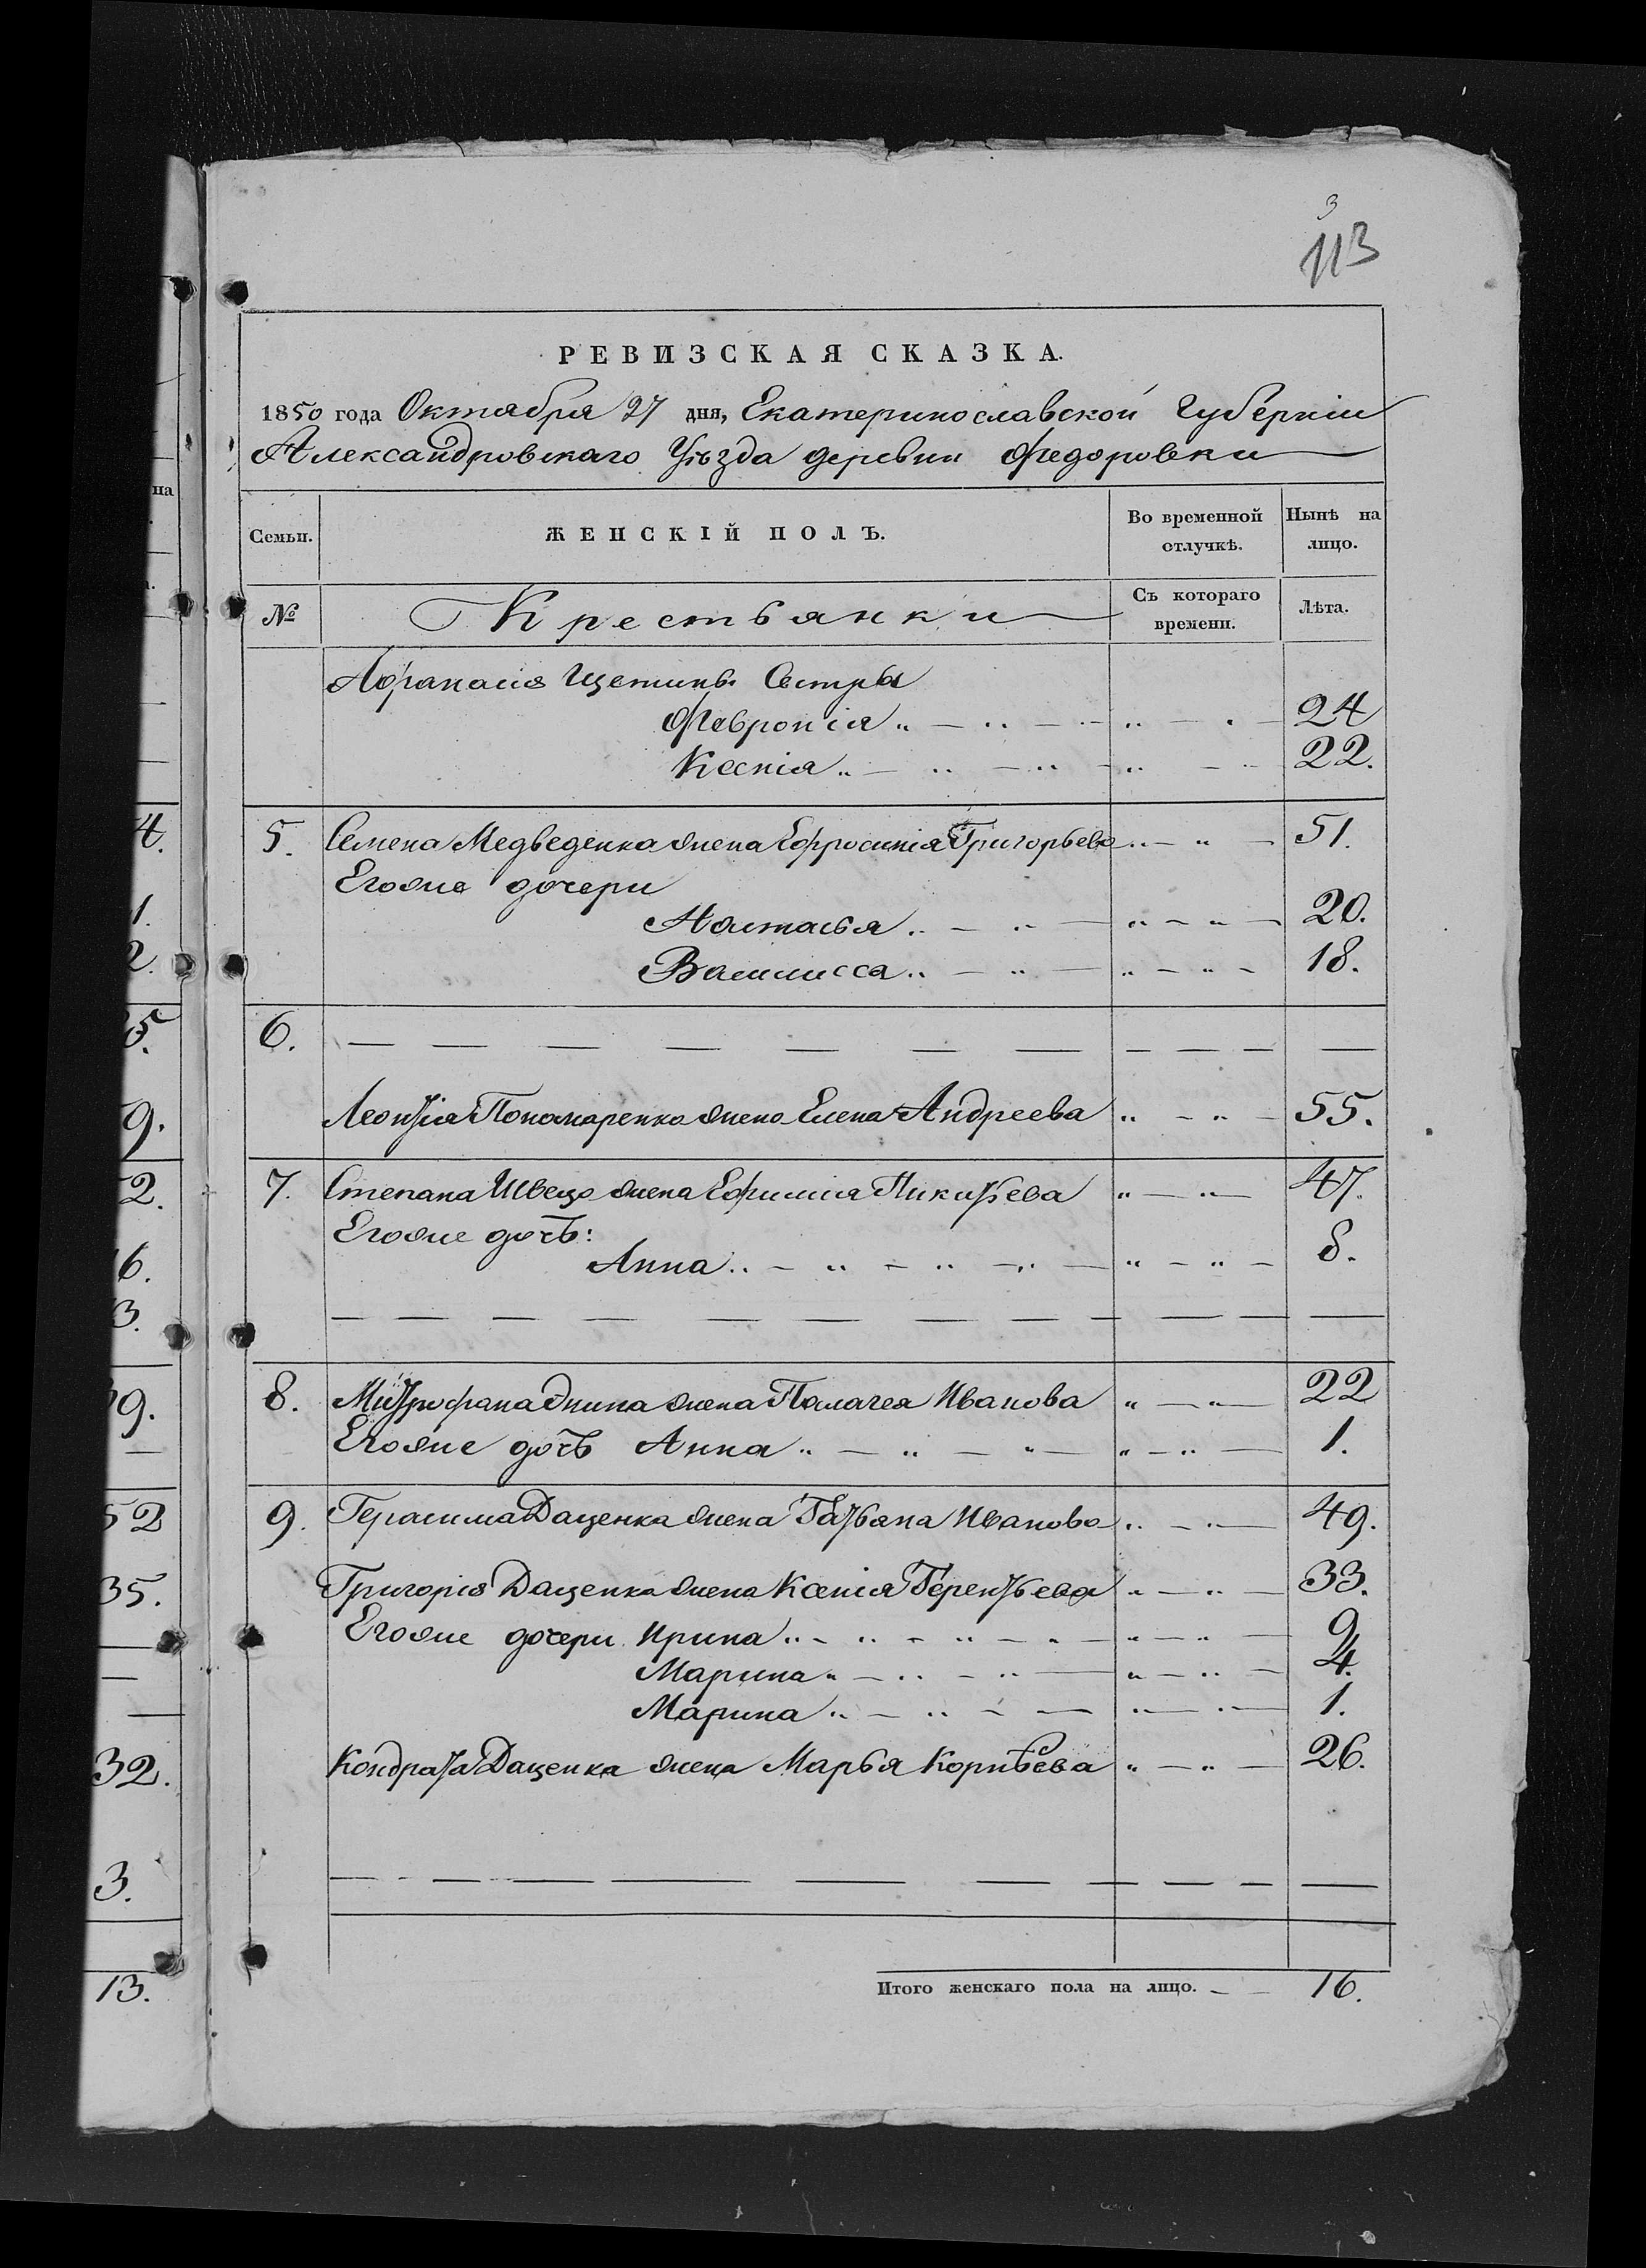 3
113
РЕВИЗСКАЯ СКАЗКА.
1850 года Октября 27 дня, Екатеринославской Губерніи
Александровскаго Уѣзда деревни Федоровки
Семьи. ЖЕНСКІЙ ПОЛЪ. Во временной отлучкѣ. Нынѣ на лицо.
№ Крестьянки Съ котораго времени. Лѣта.
Афанасія Щетины Сестры
Февронія 24
Ксенія 22.
5. Семена Медведенка жена Ефросинія Григорьева 51.
Егоже дочери
Настасья 20.
Василисса 18.
6.
Леонтія Пономаренка жена Елена Андреева 55.
7. Степана Швеца жена Ефимія Никитьева 47.
Егоже дочь:
Анна 8.
8. Митрофана жена Палагея Иванова 22
Егоже дочь Анна 1.
9. Герасима Даценка жена Татьяна Иванова 49.
Григорія Даценка жена Ксенія Терентьева 33.
Егоже дочери Ирина 9
Марина 4.
Марина 1.
Кондрата Даценка жена Марья Корнѣева 26.
Итого женскаго пола на лицо. 16.
на
4.
1.
2.
5.
9.
2.
6.
3.
9.
52
35.
32.
3.
13.